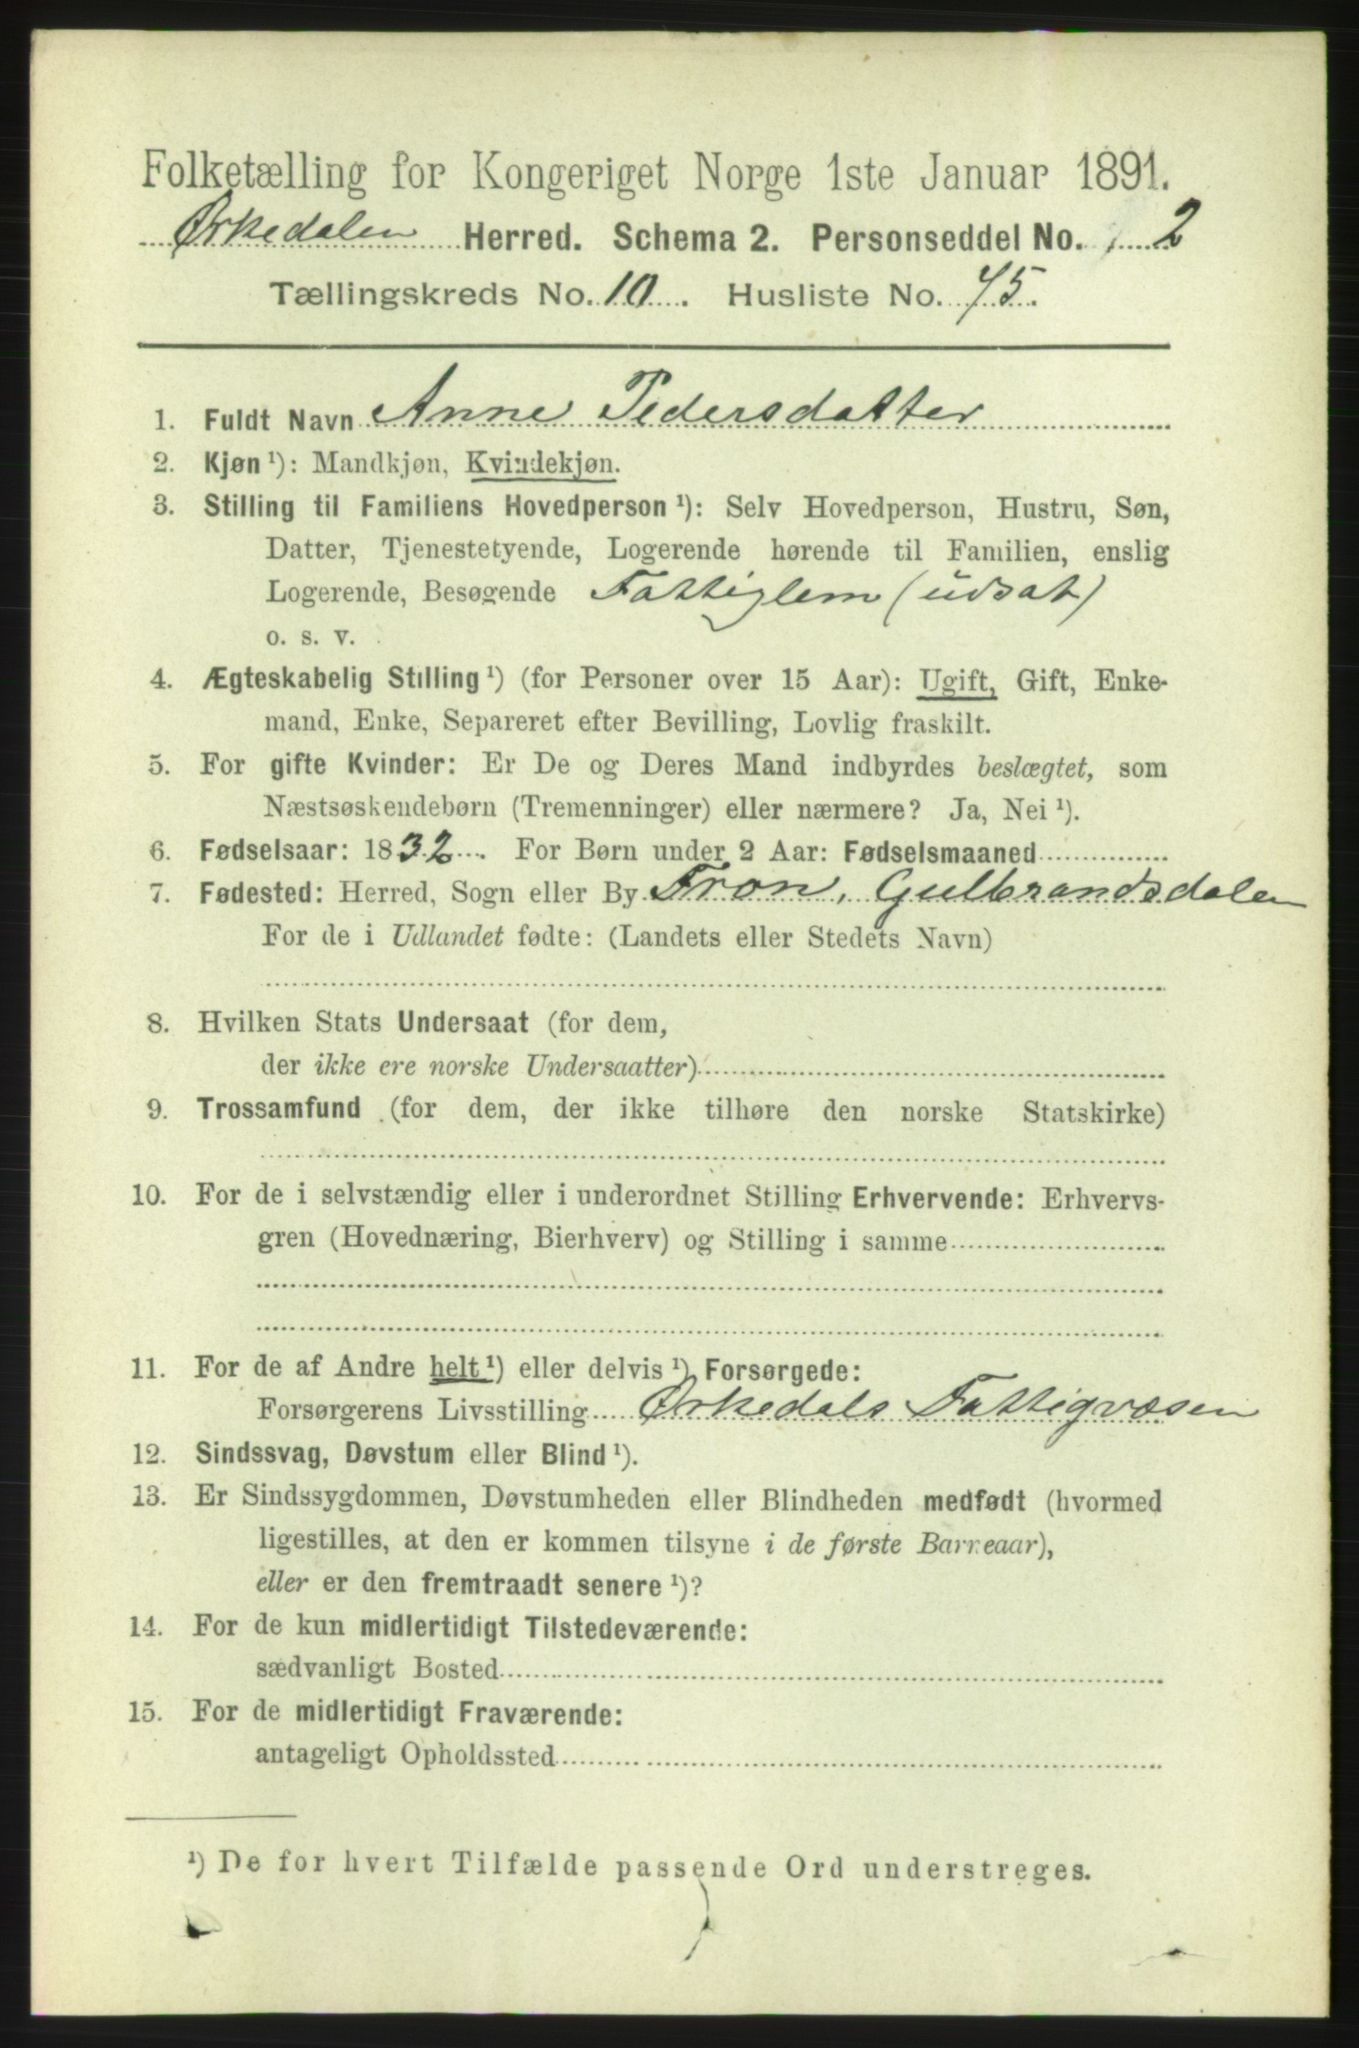 Folketælling for Kongeriget Norge 1ste Januar 1891.
Ørkedalen Herred. Schema 2. Personseddel No. 2
Tællingskreds No. 10. Husliste No. 45.
1. Fuldt Navn Anne Pedersdatter
2. Kjøn ¹): Mandkjøn, Kvindekjøn.
3. Stilling til Familiens Hovedperson ¹): Selv Hovedperson, Hustru, Søn,
Datter, Tjenestetyende, Logerende hørende til Familien, enslig
Logerende, Besøgende Fattiglem (udsat)
o. s. v.
4. Ægteskabelig Stilling ¹) (for Personer over 15 Aar): Ugift, Gift, Enke-
mand, Enke, Separeret efter Bevilling, Lovlig fraskilt.
5. For gifte Kvinder: Er De og Deres Mand indbyrdes beslægtet, som
Næstsøskendebørn (Tremenninger) eller nærmere? Ja, Nei ¹).
6. Fødselsaar: 1832. For Børn under 2 Aar: Fødselsmaaned
7. Fødested: Herred, Sogn eller By Fron, Gulbrandsdalen
For de i Udlandet fødte: (Landets eller Stedets Navn)
8. Hvilken Stats Undersaat (for dem,
der ikke ere norske Undersaatter)
9. Trossamfund (for dem, der ikke tilhøre den norske Statskirke)
10. For de i selvstændig eller i underordnet Stilling Erhvervende: Erhvervs-
gren (Hovednæring, Bierhverv) og Stilling i samme
11. For de af Andre helt ¹) eller delvis ¹) Forsørgede:
Forsørgerens Livsstilling Ørkedals Fattigvæsen
12. Sindssvag, Døvstum eller Blind ¹).
13. Er Sindssygdommen, Døvstumheden eller Blindheden medfødt (hvormed
ligestilles, at den er kommen tilsyne i de første Barneaar),
eller er den fremtraadt senere ¹)?
14. For de kun midlertidigt Tilstedeværende:
sædvanligt Bosted
15. For de midlertidigt Fraværende:
antageligt Opholdssted
¹) De for hvert Tilfælde passende Ord understreges.